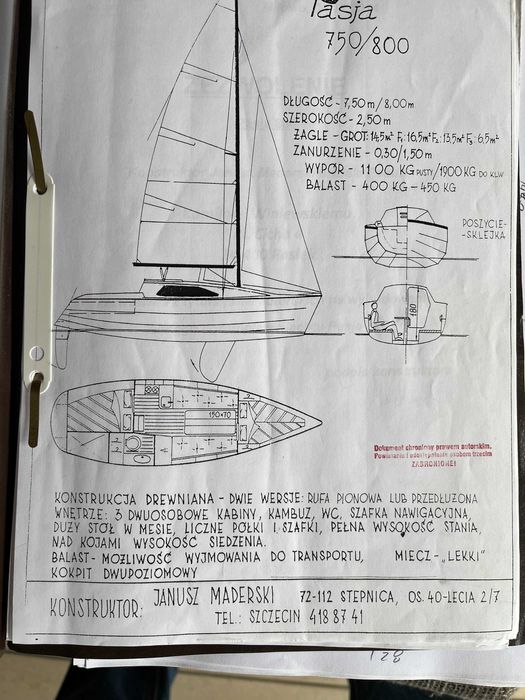 Tasja
750/800
DŁUGOŚĆ - 7,50 m / 8,00 m
SZEROKOŚĆ - 2,50 m
ŻAGLE - GROT: 14,5 m² F₁: 16,5 m² F₂: 13,5 m² F₃: 6,5 m²
ZANURZENIE - 0,30/1,50 m
WYPÓR - 1100 KG PUSTY/1900 KG DO KLW
BALAST - 400 KG - 450 KG
POSZYCIE-
-SKLEJKA
180
190×70
Dokument chroniony prawem autorskim.
Powielanie i udostępnianie osobom trzecim
ZABRONIONE!
KONSTRUKCJA DREWNIANA - DWIE WERSJE: RUFA PIONOWA LUB PRZEDŁUŻONA
WNĘTRZE: 3 DWUOSOBOWE KABINY, KAMBUZ, WC, SZAFKA NAWIGACYJNA,
DUŻY STÓŁ W MESIE, LICZNE PÓŁKI I SZAFKI, PEŁNA WYSOKOŚĆ STANIA,
NAD KOJAMI WYSOKOŚĆ SIEDZENIA.
BALAST - MOŻLIWOŚĆ WYJMOWANIA DO TRANSPORTU, MIECZ - „LEKKI"
KOKPIT DWUPOZIOMOWY
KONSTRUKTOR: JANUSZ MADERSKI 72-112 STEPNICA, OS. 40-LECIA 2/7
TEL.: SZCZECIN 418 87 41